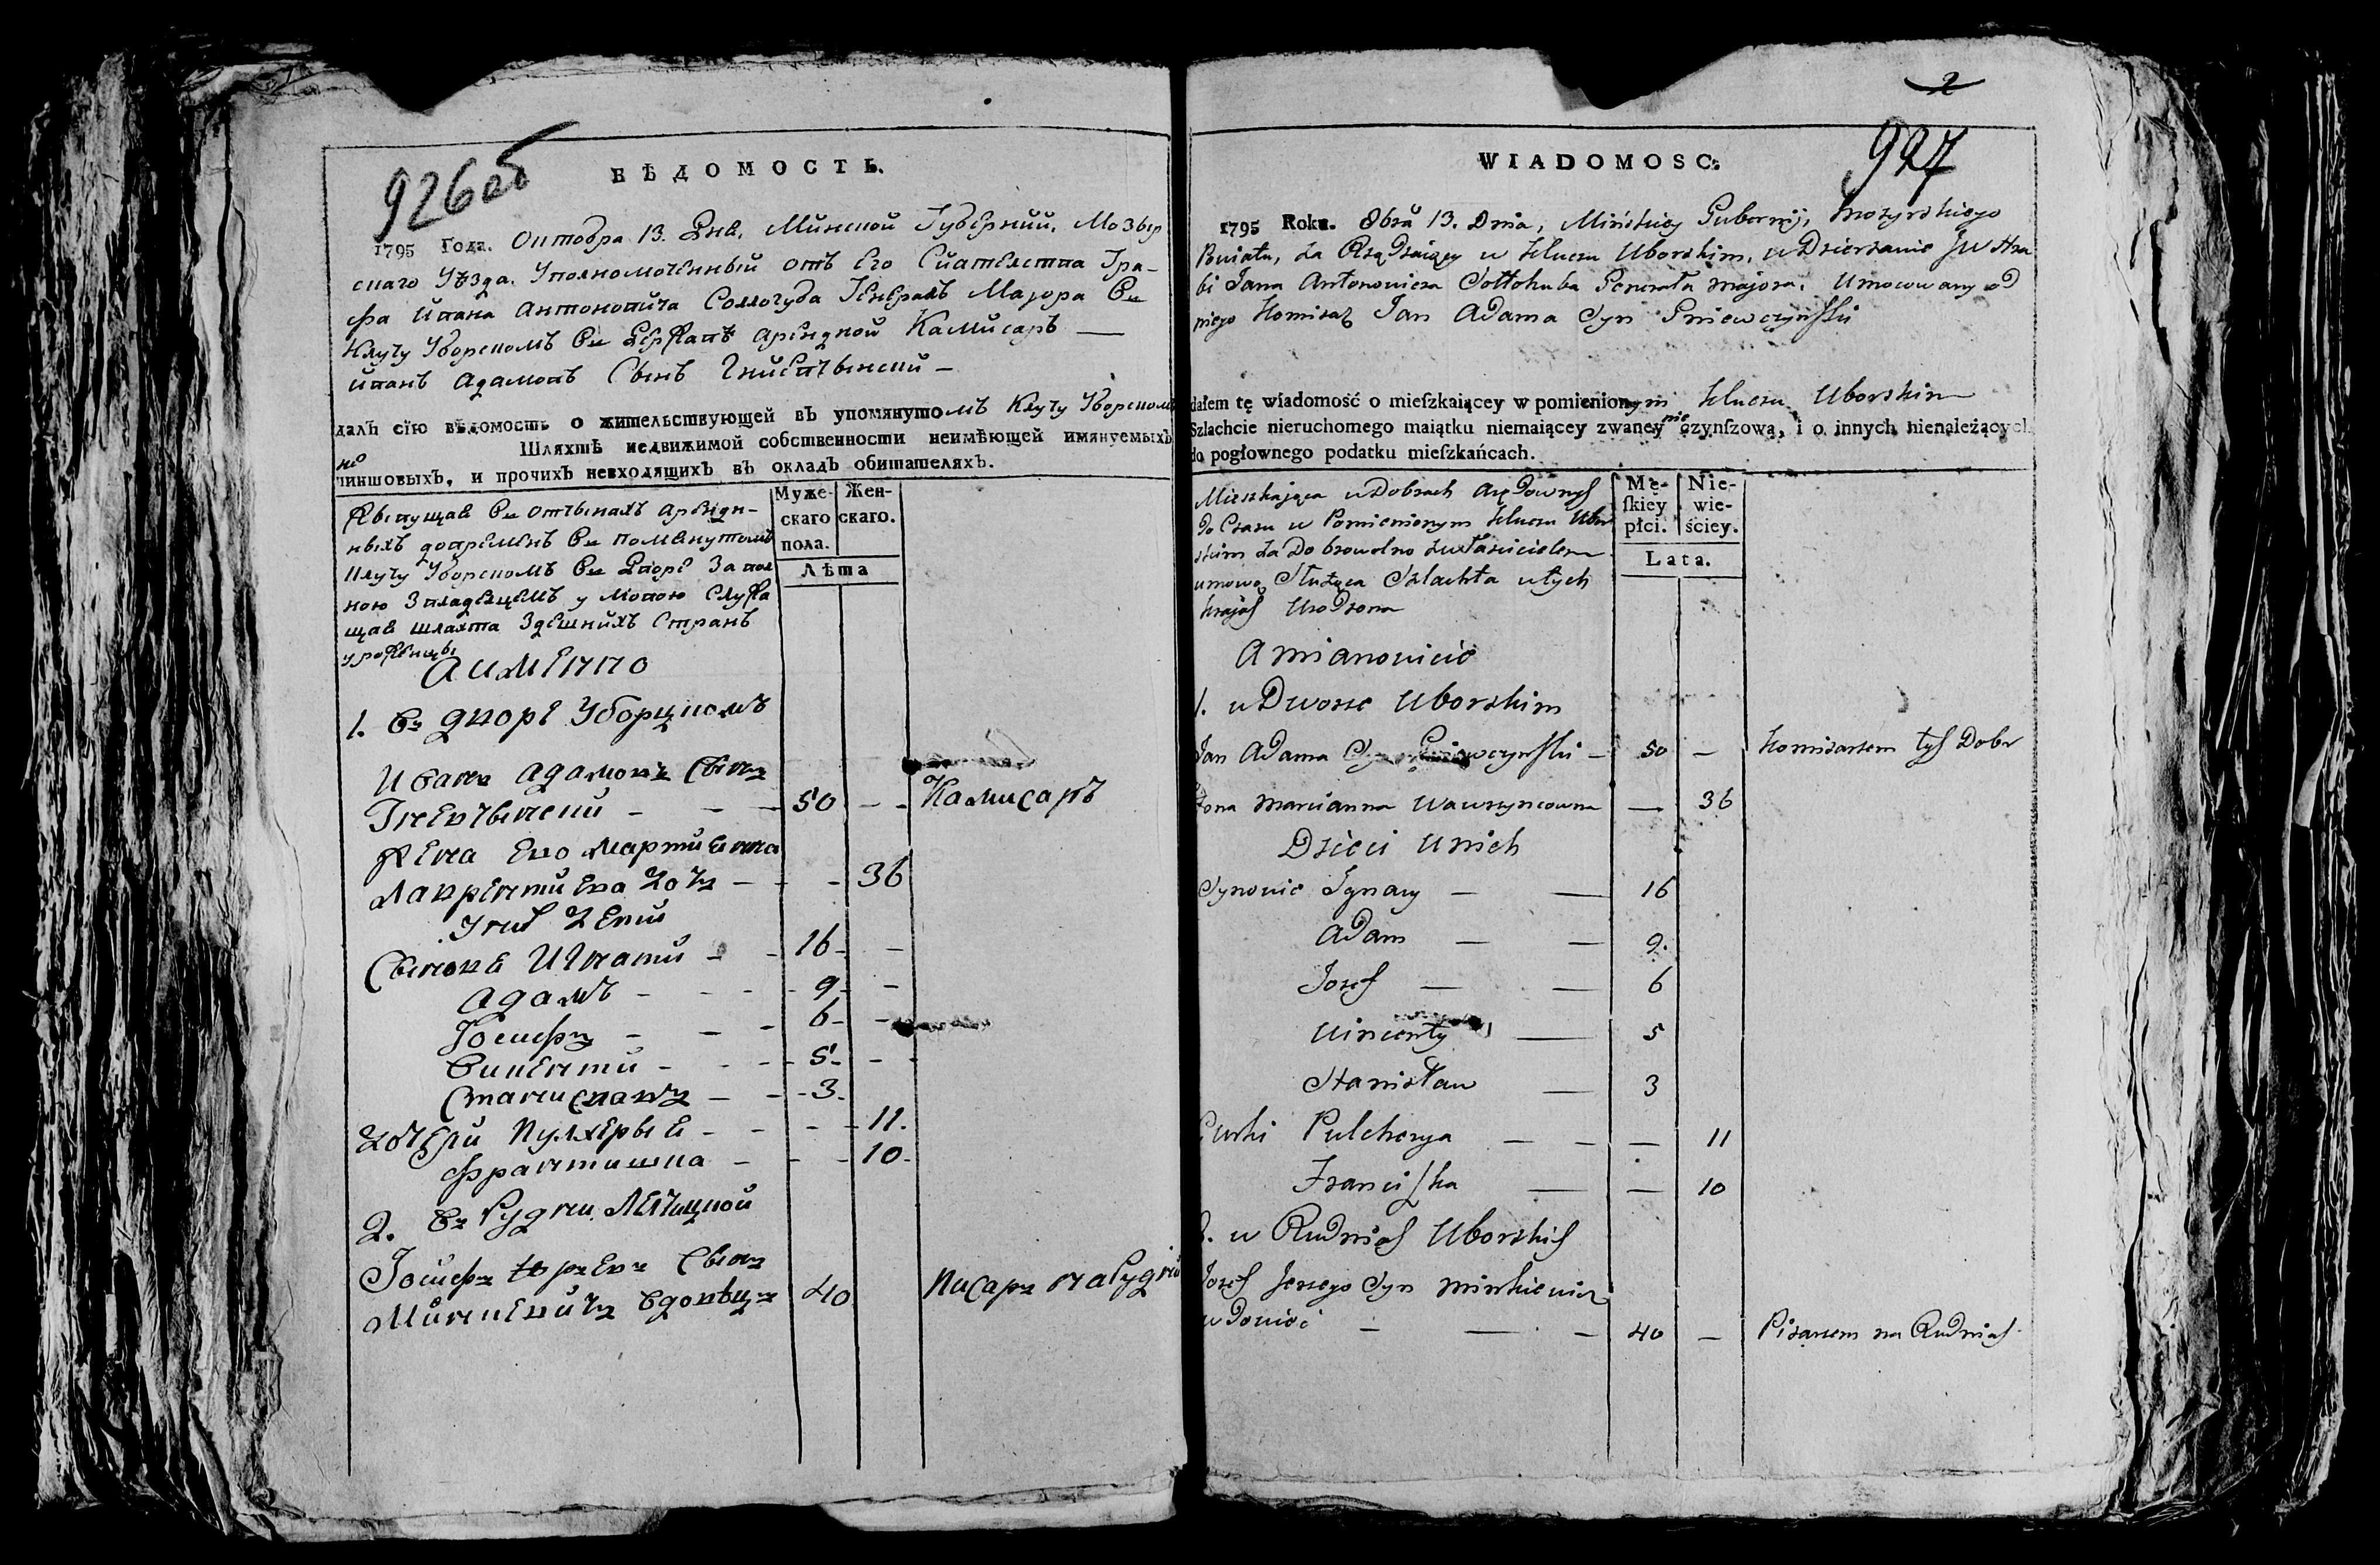 926об
ВѢДОМОСТЬ.
1795 Года. Октобра 13. Дня, Минской Губернии, Мозыр
скаго Уѣзда. Уполномоченный отъ Его Сиателства Гра-
фа Ивана Антоновича Соллогуба Генералъ Маэора Въ
Ключу Уборскомъ Въ Державѣ Арендной Камисаръ —
Иванъ Адамовъ Сынъ
далъ сїю вѣдомость о жительствующей въ упомянутомъ Ключу Уборскомъ
Шляхтѣ недвижимой собственности неимѣющей имянуемыхъ
не
чиншовыхъ, и прочихъ невходящихъ въ окладъ обитателяхъ.
Муже-
скаго
пола.
Жен-
скаго.
Лѣта
Живущая Въ отчынахъ аренд-
ныхъ довремѣнъ Въ помянутомъ
Ключу Уборскомъ Въ Дворе За вол
ною Звладелцемъ умовою Служа
щая шляхта Здешнихъ Странъ
урожеnцы
А имеnnо
1. Въ дворе Уборцкомъ
Иванъ Адамовъ Сынъ
Гневчынский — 50 — Камисаръ
Жена Ево Мартиянна
Лаврентиева Дочъ — 36
У них Дети
Сыновя Игнати — 16 —
Адамъ — 9 —
Іосифъ — 6 —
Винценти — 5 —
Станиславъ — 3
Дочери Пулхерыя — 11.
Франтишка — 10
2. Въ Рудни
Іосифъ Сынъ
Минкевичъ Вдовецъ 40 Писаръ на Рудни
2
927
WIADOMOSC:
1795 Roku. 8bra 13. Dnia, Mińskiey Gubernij, Mozyrskiego
Powiatu, Za Rządzaiący w kluczu Uborskim, w Dzierżawie JW Hra
bi Jana Antonowicza Sołłohuba Generała Majora, Umocowany od
niego Komisarz Jan Adama Syn Gniewczyński
dałem tę wiadomość o mieſzkaiącey w pomienionym kluczu Uborskim
Szlachcie nieruchomego maiątku niemaiącey zwaney nie czynſzową, i o innych nienależących
do pogłownego podatku mieſzkańcach.
Mieszkająca w Dobrach
do Czasu w Pomienionym kluczu Ubor
skim Za Dobrowolno zwłaścicielem
umową Służąca Szlachta w tych
krajach Urodzona
Mę-
ſkiey
płci.
Nie-
wie-
ściey.
Lata.
A mianowicie
1. w Dworze Uborskim
Jan Adama Syn Gniewczyński — 50 — komisarzem tych Dobr
Żona Marcianna Wawrzyncowna — 36
Dzieci U nich
Synowie Ignacy — 16
Adam — 9.
Jozef — 6
Wincenty — 5
Stanisław — 3
Curki Pulcherya — 11
Franciſzka — 10
2. w Rudniach Uborskich
Jozef Jerzego Syn Minkiewicz
wdowiec — 40 — Pisarzem na Rudniach